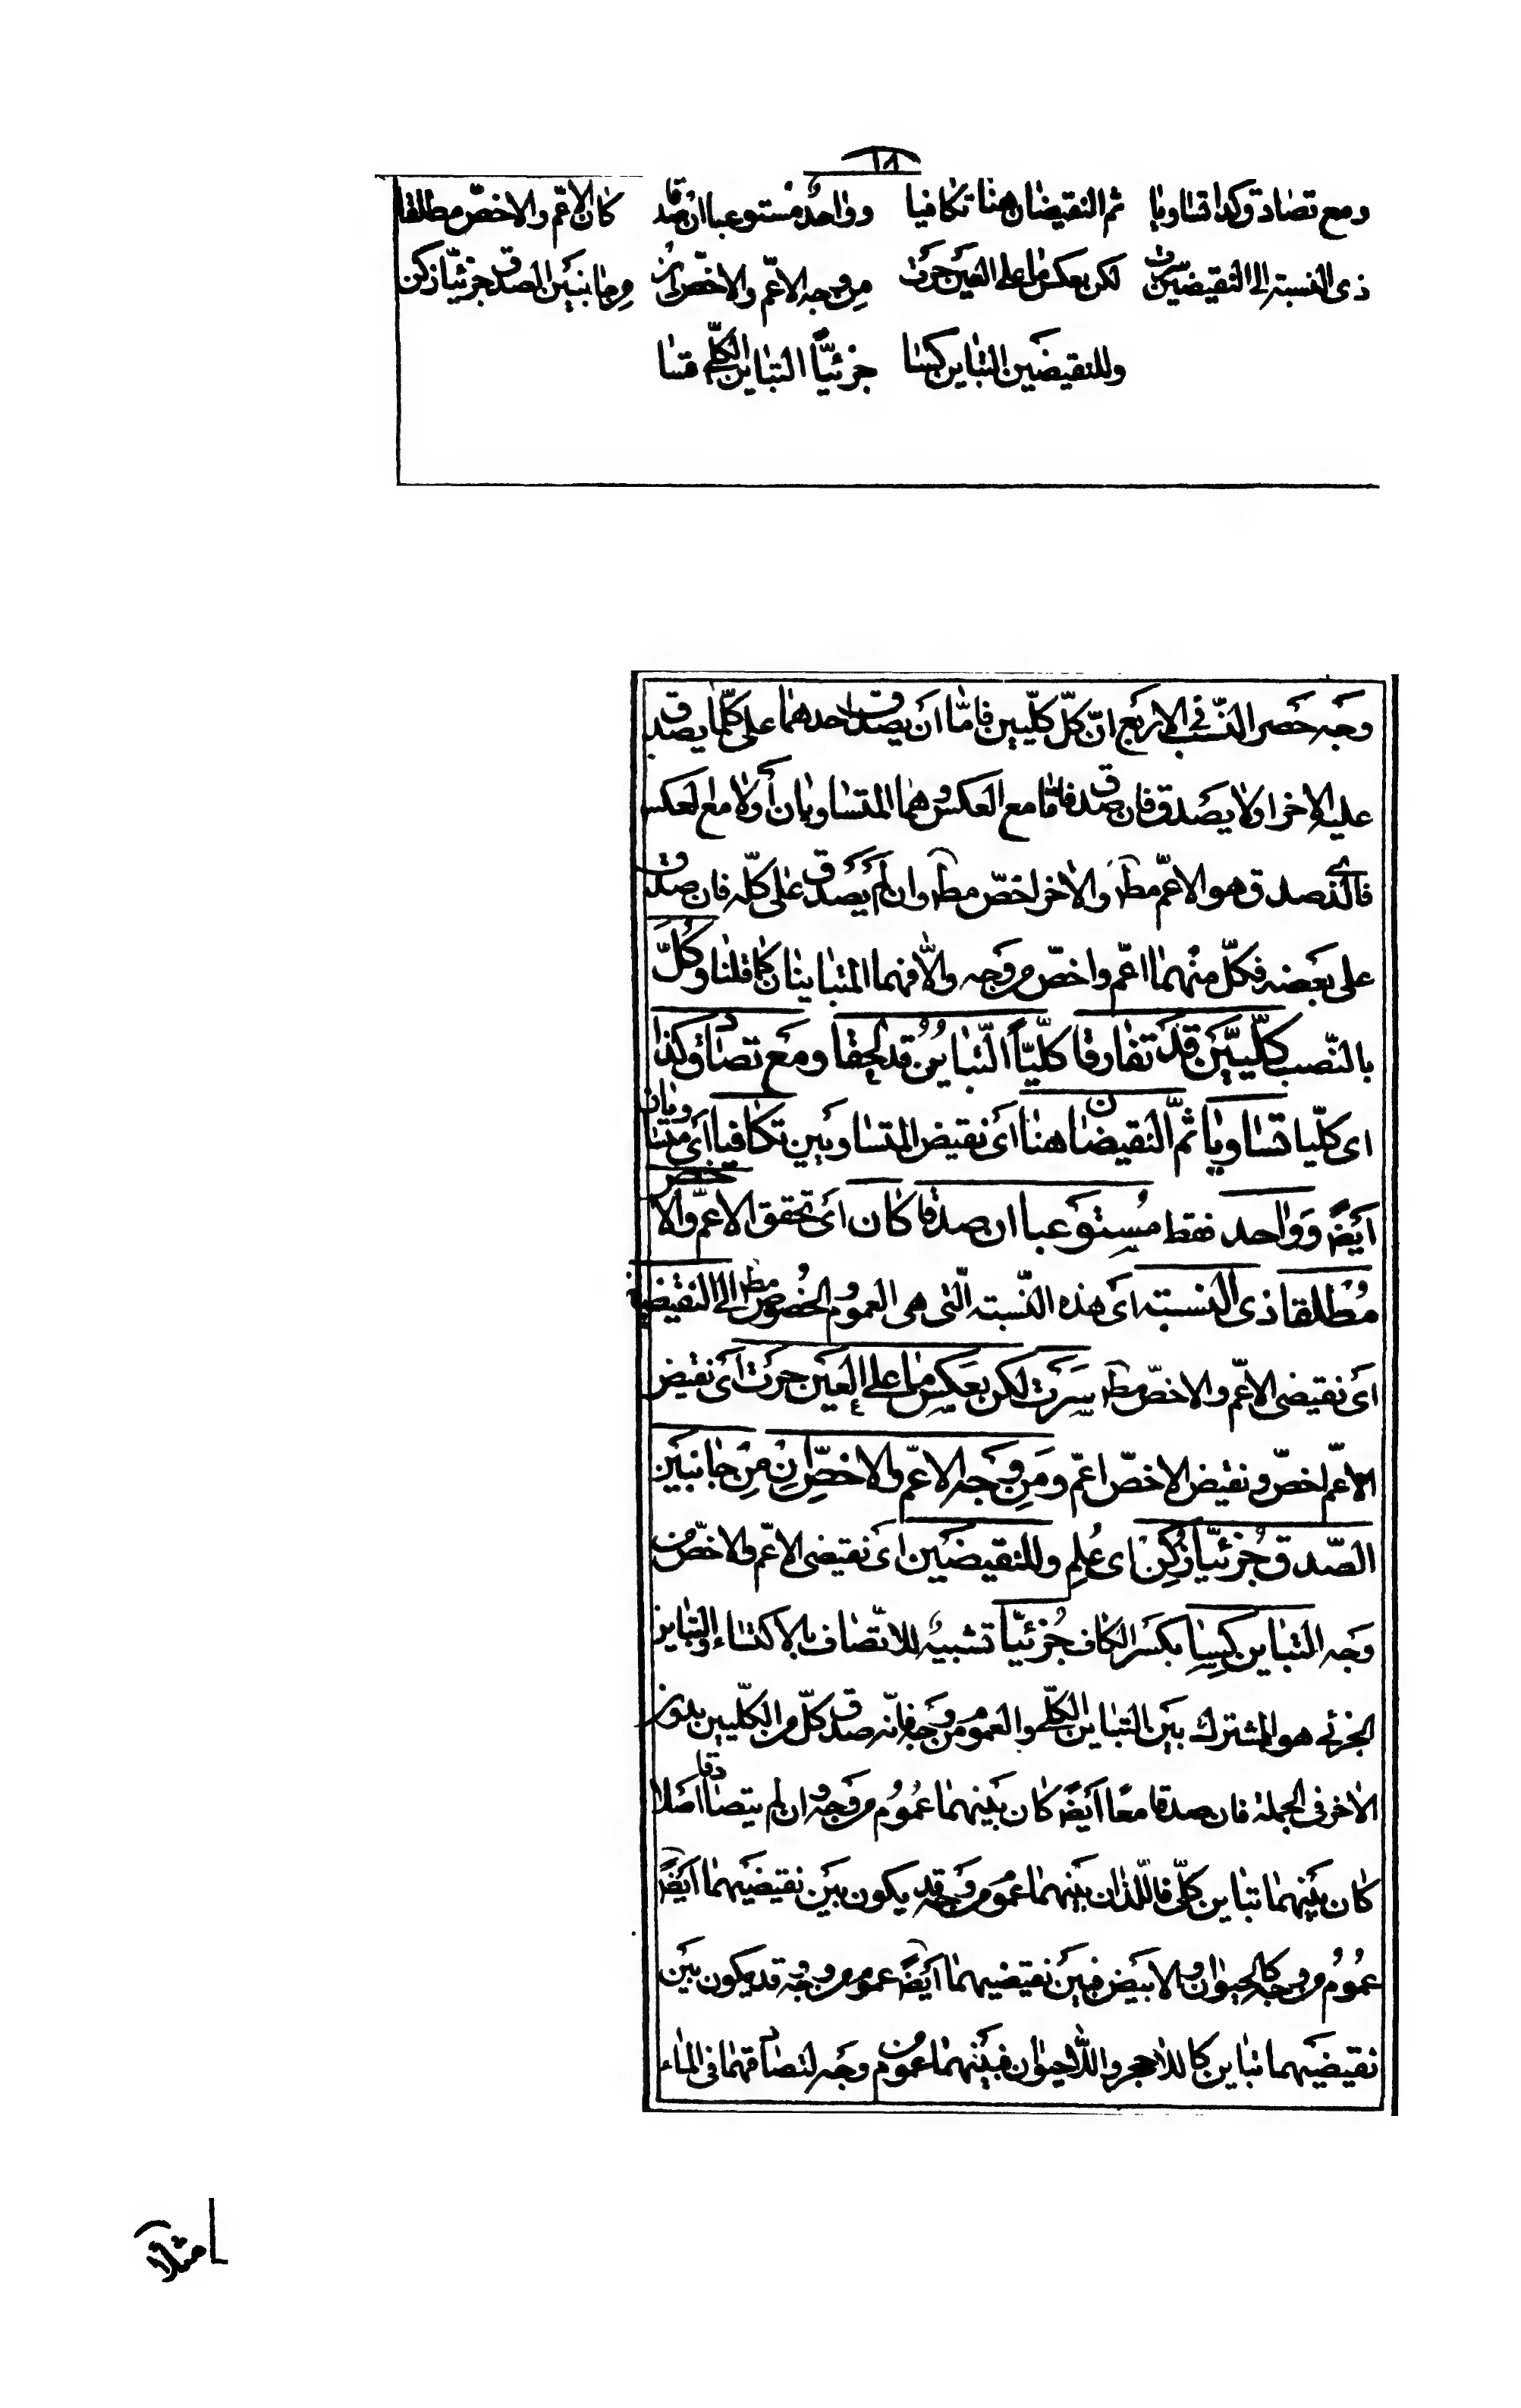 ١٨
ومع تصادق كذا تساويا ثم النقيضان هنا تكافيا وواحد مستوعبا ان صدقا كان الاعمّ والاخصّ مطلقا
ذى النسبته الى النقيضين سرت لكن بعكس ما على العين جرت من وجه الاعمّ والاخصّ ان من جانبين الصدق جزئيّا زكن
وللنقيضين التباين كسا جزئيًّا التباين الكلّى قسا
وجه حصر النّسب فى الاربع انّ كلّ كلّيين فامّا ان يصدق احدهما على كلّما يصدق
عليه الاخر اولا يصدق فان صدق فامّا مع العكس وهما المتساويان أولا مع العكس
فالّذى صدق هو الاعمّ مط والاخر اخصّ مط وان لم يصدق على كلّه فان صدق
على بعضه فكلّ منهما اعمّ واخصّ من وجه والّا فهما المتباينان كما قلنا وكُلّ
بالنّصب كلّيّين قد تفارقا كلّيّاً التّباين قد لحقا ومع تصادق كذا
اى كلّيا تساويا ثمّ النقيضان هنا اى نقيض المتساويين تكافيا اى متساويان
ايضً وواحد فقط مستوعبا ان صدقا كان اى تحقق الاعمّ والاخص
مُطلقا ذى النسبته اى هذه النّسبته الّتى هى العموم والخصوص مط الى النقيضين
اى نقيضى الاعمّ والاخصّ مط سَرت لكن بعكس ما على العين جرت اى نقيض
الاعمّ اخصّ ونقيض الاخصّ اعمّ ومن وجه الاعمّ والاخصّ ان من جانبين
الصّدق جُزئيّا زُكِن اى عُلِم وللنقيضين اى نقيضى الاعمّ والاخصّ من
وجه التباين كِسا بكسر الكاف جُزئيّا تشبيه للاتّصاف بالاكتساء والتباين
الجزئى هو المشترك بين التباين الكلّى والعموم من وجه فانّه صدق كلّ من الكلّيين بدون
الاخر فى الجملة فان صدقا معًا ايضً كان بينهما عُموُم من وجه وان لم يتصادقا اصلا
كان بينهما تباين كلّى فاللّذان بينهما عموم من وجه قد يكون بين نقيضيهما ايضً
عمُوُم من وجه كالحيوان والابيض فبين نقيضيهما ايضً عموم من وجه وقد يكون بين
نقيضيهما تباين كاللاحجر واللّاحيوان فبينهما عموم من وجه لتصادقهما فى الماء
مثلاً